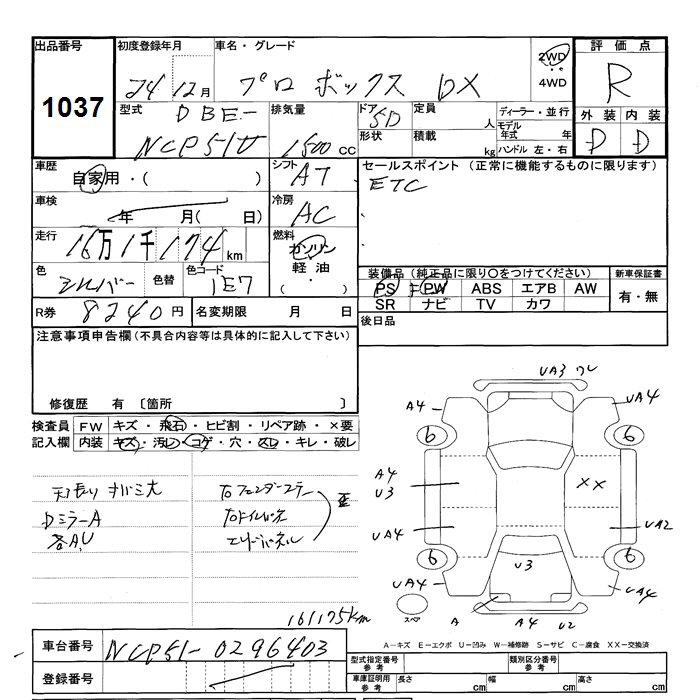 出品番号 初度登録年月 車名・グレード 2WD 評価点
1037 24 12月 プロボックス DX ・・ 4WD R
型式 DBE- 排気量 ドア 5D 定員 人 ディーラー・並行 外装 内装
NCP51V 1500 cc 形状 積載 kg モデル年式 年 D D
ハンドル 左・右
車歴 自家用・( ) シフト AT セールスポイント (正常に機能するものに限ります)
ETC
車検 年 月( 日) 冷房 AC
走行 16万1千174 km 燃料 ガソリン
軽油
( ・ )
色 シルバー 色替 色コード 1E7
装備品(純正品に限り○をつけてください) 新車保証書
PS PW ABS エアB AW 有・無
SR ナビ TV カワ
R券 8240 円 名変期限 月 日 後日品
注意事項申告欄(不具合内容等は具体的に記入して下さい)
修復歴 有 〔箇所 〕
検査員 FW キズ・飛石・ヒビ割・リペア跡・×要
記入欄 内装 キズ・汚レ・コゲ・穴・スレ・キレ・破レ
DミラーA
各A,U
161175km
UA3 ワレ
A4 UA4
6 6
A4
U3 XX
UA4 UA2
6 6
U3
UA4 UA4
スペア A A4 U2
A−キズ E−エクボ U−凹み W−補修跡 S−サビ C−腐食 XX−交換済
車台番号 NCP51-0296403
型式指定番号 参考 類別区分番号 参考
登録番号
車庫証明用 参考 長さ cm 幅 cm 高さ cm